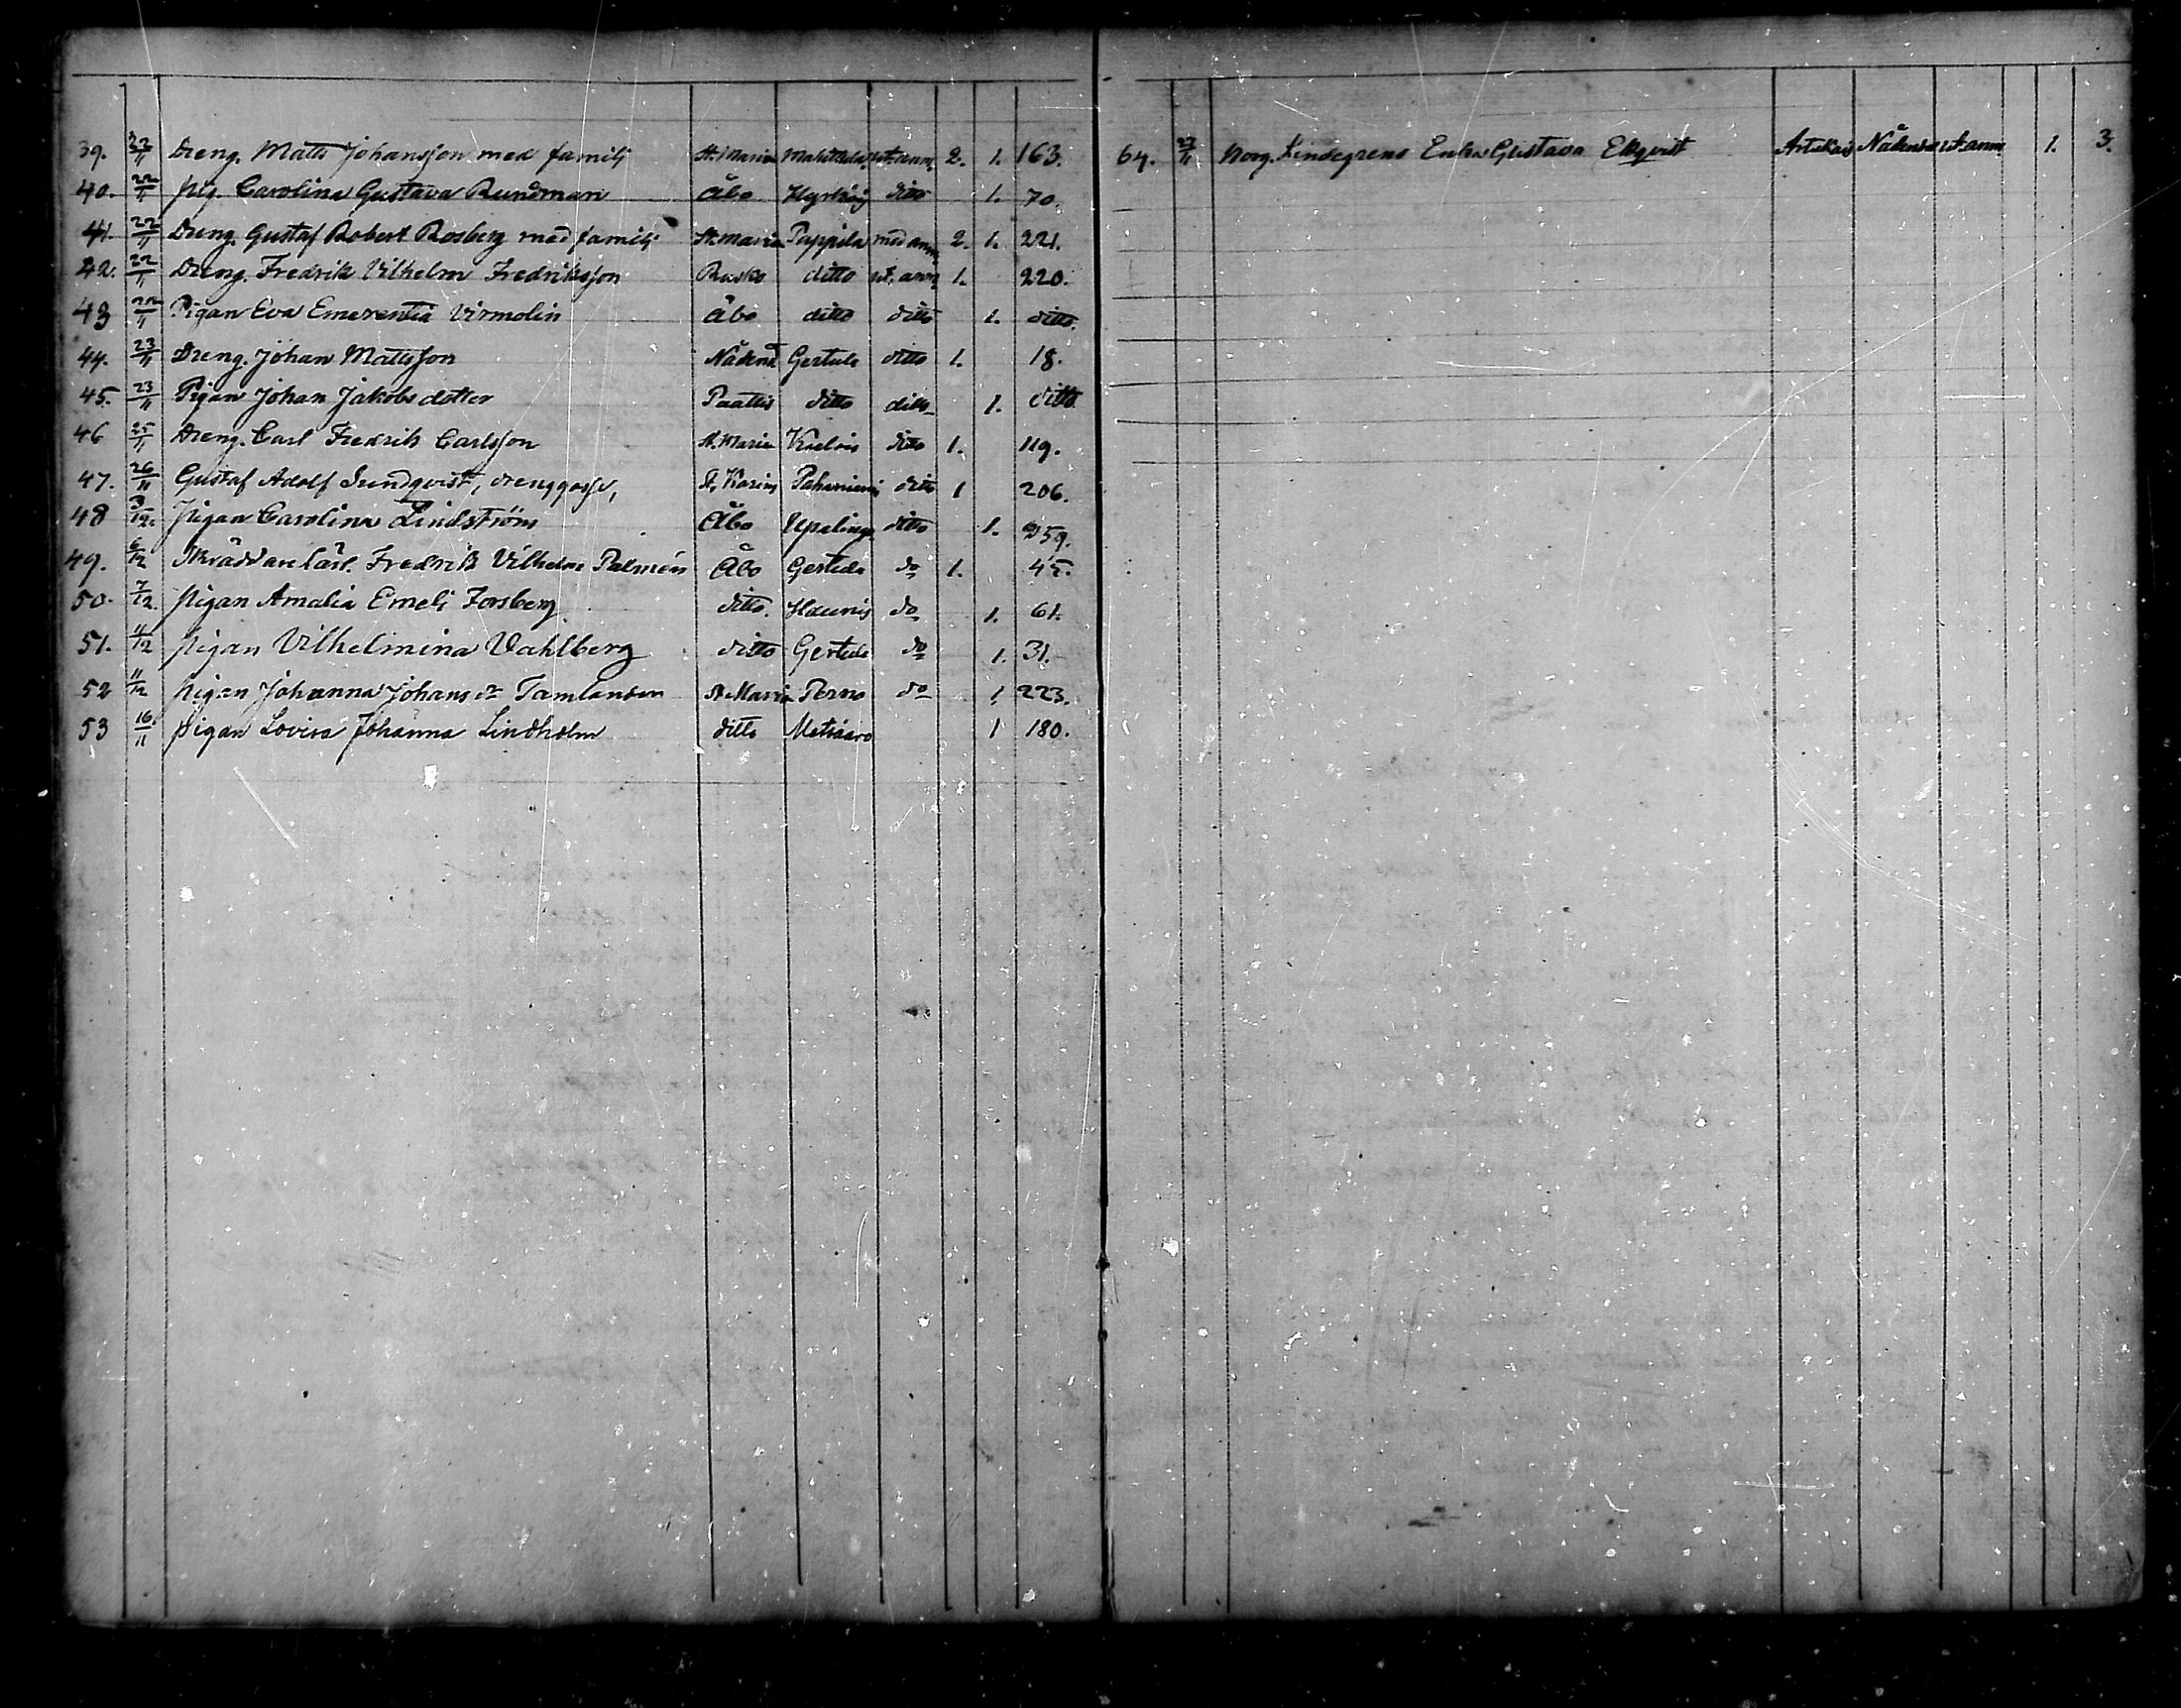 39. 22/11 Dreng. Matts Johansson med familj St. Maria ut. anm. 2. 1. 163.
40. 22/11 Pig. Carolina Gustava Rundman Åbo ditto 1. 70.
41. 22/11 Dreng. Gustaf Robert Rosberg med familj St. Maria Pappila med anm. 2. 1. 221.
42. 22/11 Dreng. Fredrik Vilhelm Fredriksson Rusko ditto ut. anm. 1. 220.
43 22/11 Pigan Eva Emerentia Virmolin Åbo ditto ditto 1. ditto.
44. 23/11 Dreng. Johan Mattsson Nådend Gertuls ditto 1. 18.
45. 23/11 Pigan Johan Jakobsdotter Paattis ditto ditto 1. ditto
46 25/11 Dreng. Carl Fredrik Carlsson St. Maria ditto 1. 119.
47. 26/11 Gustaf Adolf Sundqvist, drenggosse, St. Karins Pahaniemi ditto 1 206.
48 3/12. Pigan Carolina Lindström Åbo ditto 1. 259.
49. 6/12 Skräddarelärl. Fredrik Vilhelm Palmén Åbo Gertuls do 1. 45.
50. 7/12. Pigan Amalia Emeli Forsberg ditto. Haunis do 1. 61.
51. 11/12 Pigan Vilhelmina Vahlberg ditto Gertuls do 1. 31.
52 11/12 Pigan Johanna Johansdr Tamlander St Maria Perno do 1 223.
53 16/11 Pigan Lovisa Johanna Lindholm ditto 1 180.
64. 27/11 Borg. Lindegrens Enka Gustava Ekqvist Artukais Nådend ut. anm. 1. 3.